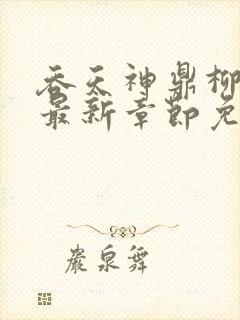 吞天神鼎柳
最新章节免
岩泉舞